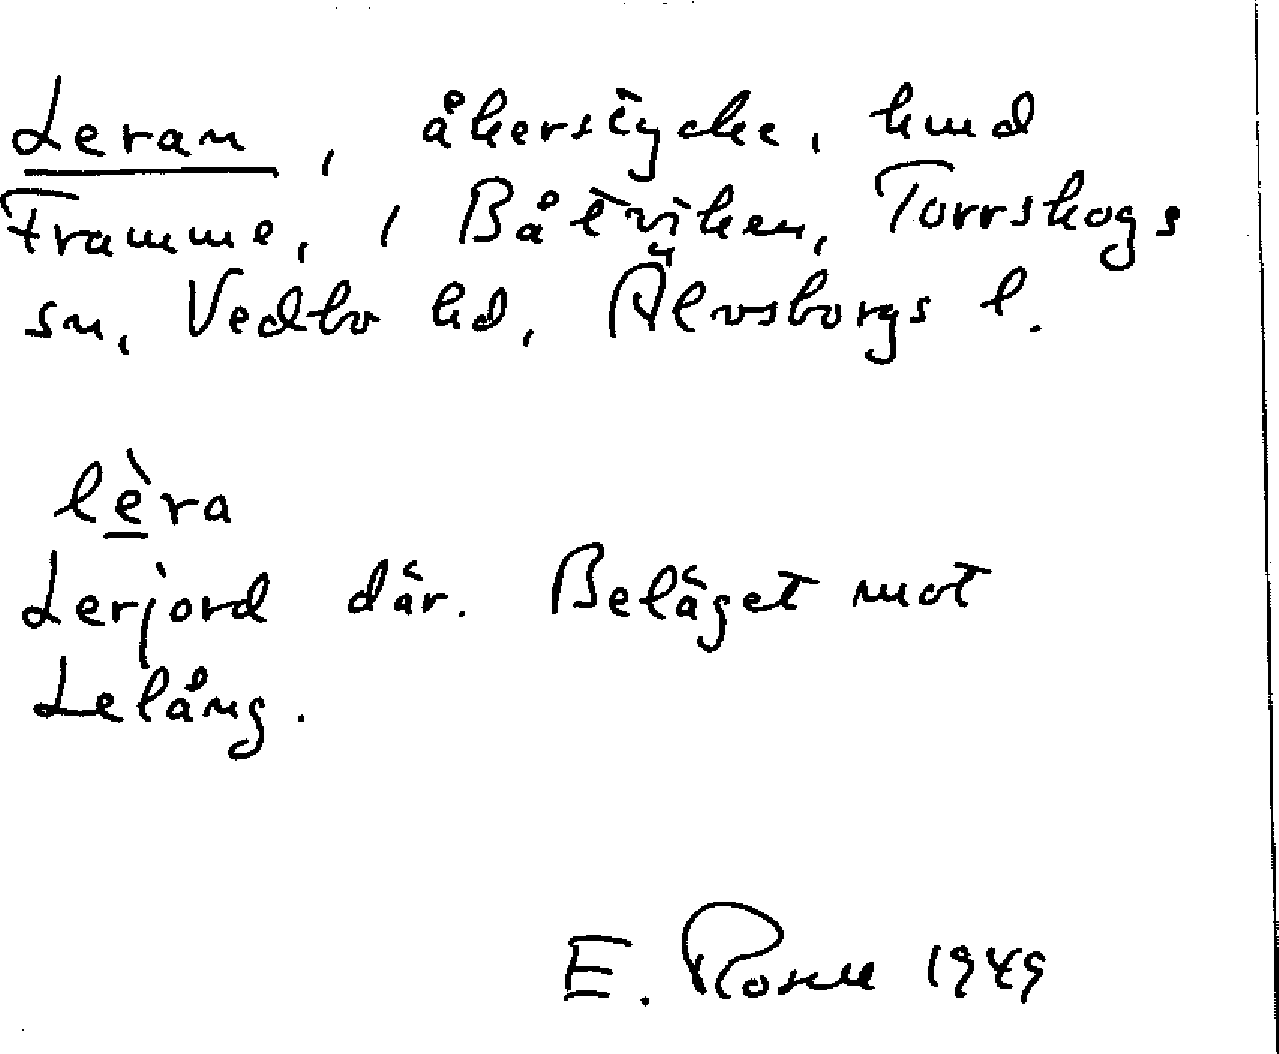 Leran, åkerstycke, hmd
Framme, i Båtviken, Torrskogs
sn, Vedbo hd, Älvsborgs l.
lèra
Lerjord där. Beläget mot
Lelång.
E. 1949